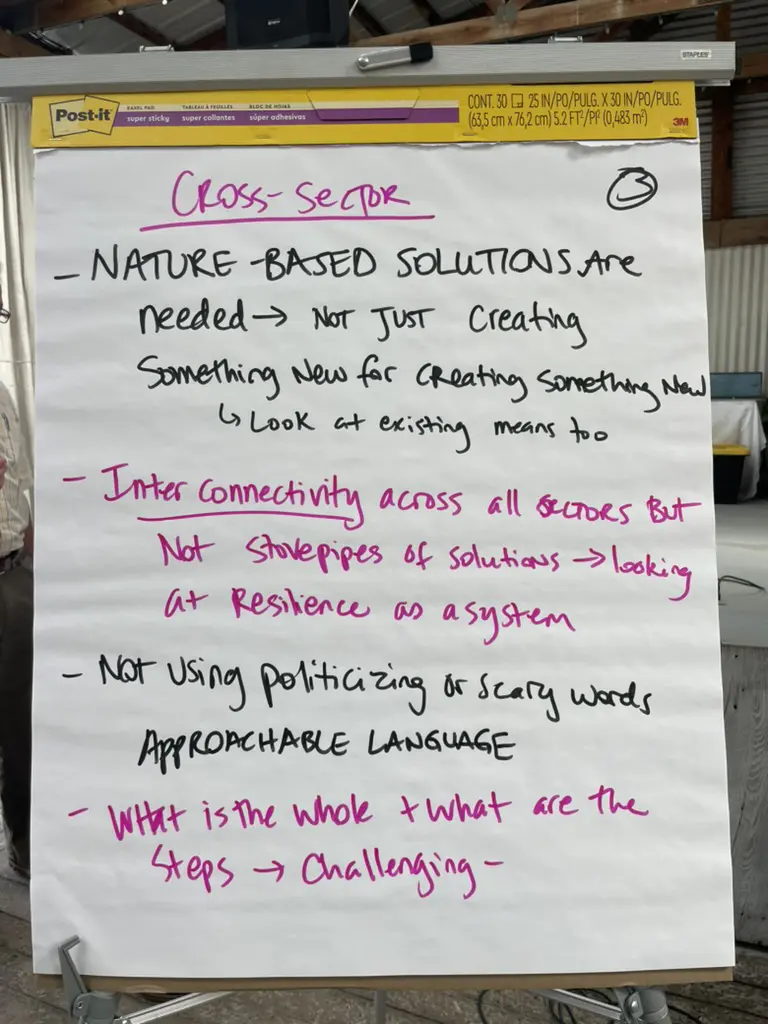 STAPLES
Post-it
EASEL PAD
super sticky
TABLEAU À FEUILLES
super collantes
BLOC DE HOJAS
súper adhesivas
CONT. 30 25 IN/PO/PULG. X 30 IN/PO/PULG.
(63,5 cm x 76,2 cm) 5.2 FT²/PI² (0,483 m²)
3M
CROSS-SECTOR
3
- NATURE-BASED SOLUTIONS Are
needed → NOT JUST Creating
Something New for creating something New
↳ Look at existing means too
- Inter connectivity across all SECTORS But
Not stovepipes of solutions → looking
at Resilience as a system
- Not using politicizing or scary words
APPROACHABLE LANGUAGE
- WHat is the whole + what are the
Steps → Challenging -